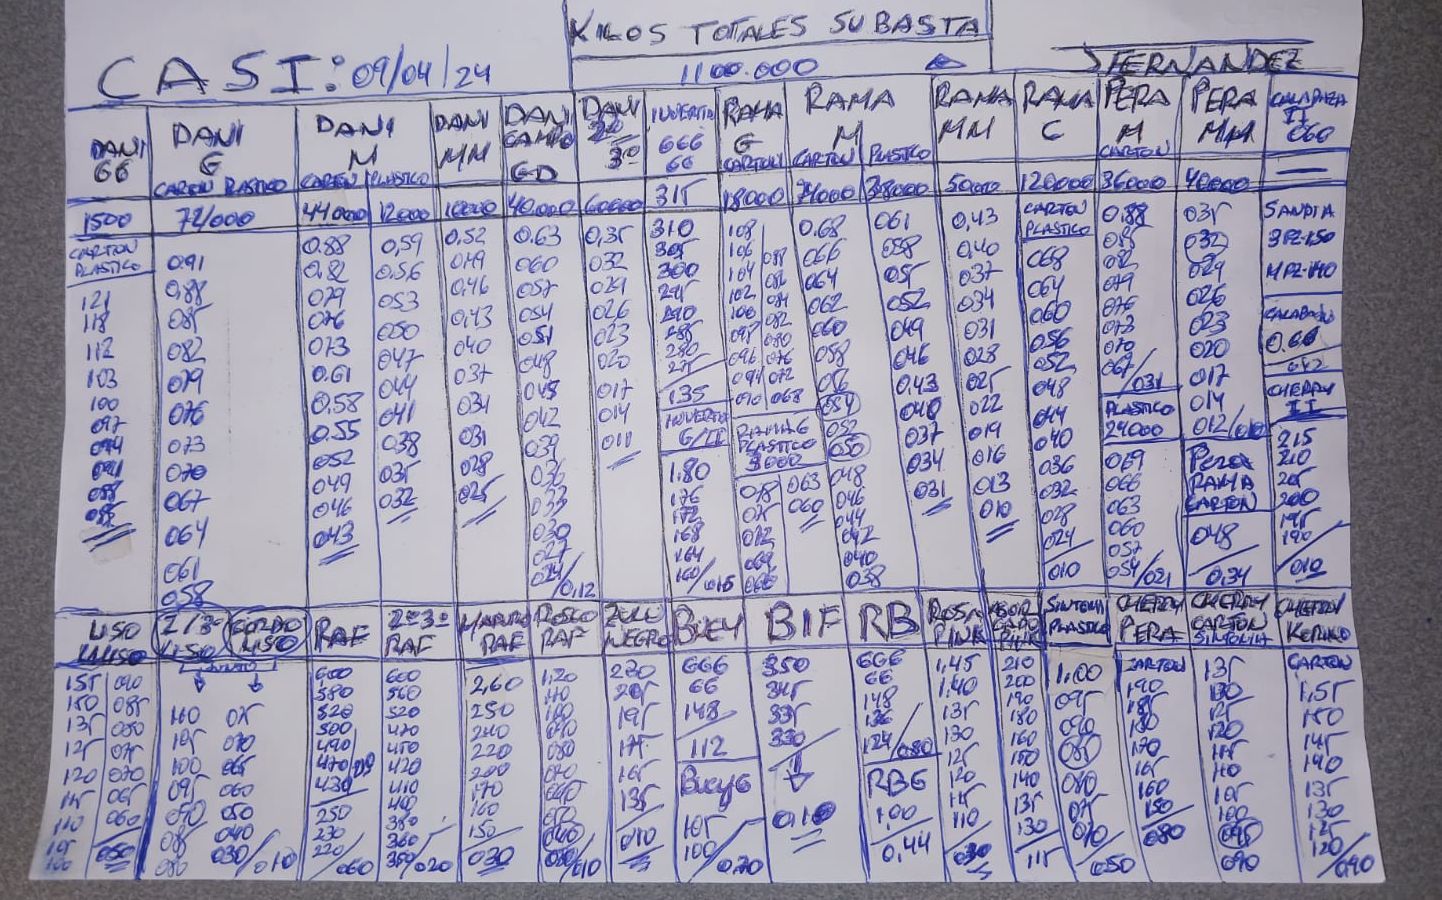 KILOS TOTALES SUBASTA
CASI: 09/04/24
1100.000
JFERNANDEZ
DANI 66
DANI G
CARTON PLASTICO
DANI M
CARTON PLASTICO
DANI MM
DANI CAMPO GD
DANI
INVERTID 666 66
RAMA G CARTON
RAMA M
CARTON PLASTICO
RAMA MM
RAMA C
PERA M CARTON
PERA MM
CALABAZA II 060
1500
44000
12000
40000
60000
315
18000
74000
38000
50000
120000
36000
40000
CARTON PLASTICO
121
118
112
103
100
097
094
091
088
085
0.91
0.88
085
082
079
076
073
070
067
064
061
058
0.88
0.82
079
076
073
0.61
0.58
0.55
052
049
046
043
0,59
0.56
053
050
047
044
041
038
035
032
0.52
049
0.46
0.43
040
037
034
031
028
025
0.63
060
057
054
051
048
045
042
039
036
033
030
027
024/0,12
0,35
032
029
026
023
020
017
014
011
310
305
300
295
290
285
280
275
135
INVERTID G/II
1.80
176
172
168
164
160/015
108
106
104
102
100
098
096
094
090
088
086
084
082
080
076
072
068
RAMA G PLASTICO 3000
078
075
072
069
066
063
060
0.68
066
064
062
060
058
056
054
052
050
048
046
044
042
040
038
061
058
055
052
049
046
0.43
040
037
034
031
0,43
0,40
037
034
031
028
025
022
019
016
013
010
CARTON PLASTICO
068
064
060
056
052
048
044
040
036
032
028
024
010
0.88
085
082
079
076
073
070
067/031
PLASTICO 24000
069
066
063
060
057
054/021
035
032
029
026
023
020
017
014
012/010
PERA RAMA CARTON
048
0,34
SANDIA
3PZ-150
4PZ-140
CALABACIN
0.60
042
CHERRY II
215
210
205
200
195
190
010
LISO
2ª/3ª LISO
GORDO LISO
JUNTO
RAF
2ª 3ª RAF
MARRO RAF
ROSCO RAF
ZULU NEGRO
BUEY
BIF
RB
ROSA PINK
ABOR GADO PINK
SINTONIA PLASTICO
CHERRY PERA
CHERRY CARTON SINTONIA
CHERRY KUMKO
155
150
135
125
120
115
110
105
100
090
085
080
075
070
065
060
050
110
105
100
095
090
085
080
075
070
065
060
050
040
030/010
600
580
520
500
490
470
430
250
230
220/060
600
560
520
470
450
420
410
400
380
360
350/020
2,60
250
240
220
200
170
160
150
030
1,20
110
100
090
080
070
060
040
030/010
230
205
195
175
165
135
010
666
66
148
112
BUEY G
105
100/070
350
345
335
330
0,10
666
66
148
136
124/080
RBG
1.00
0,44
1,45
1,40
135
130
125
120
115
110
030
210
200
190
180
160
150
140
135
130
115
1,00
095
090
085
080
075
070/050
CARTON
190
185
180
170
165
160
150
080
135
130
125
120
115
110
105
100
095
090
CARTON
1,55
150
145
140
135
130
125
120/090